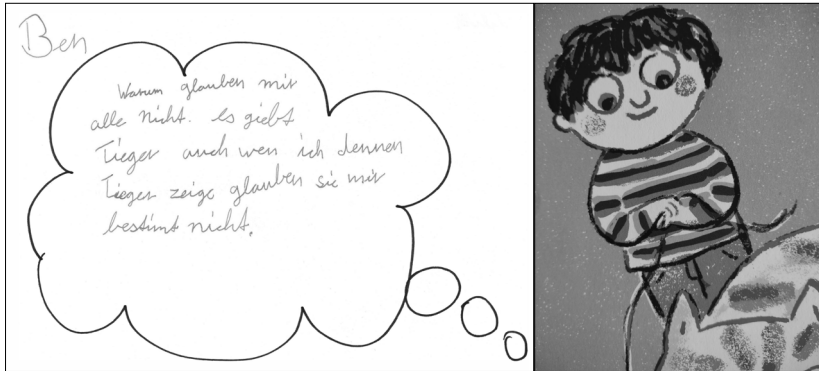 Ben
Warum glauben mir
alle nicht. es giebt
Tieger auch wen ich dennen
Tieger zeige glauben sie mir
bestimt nicht.